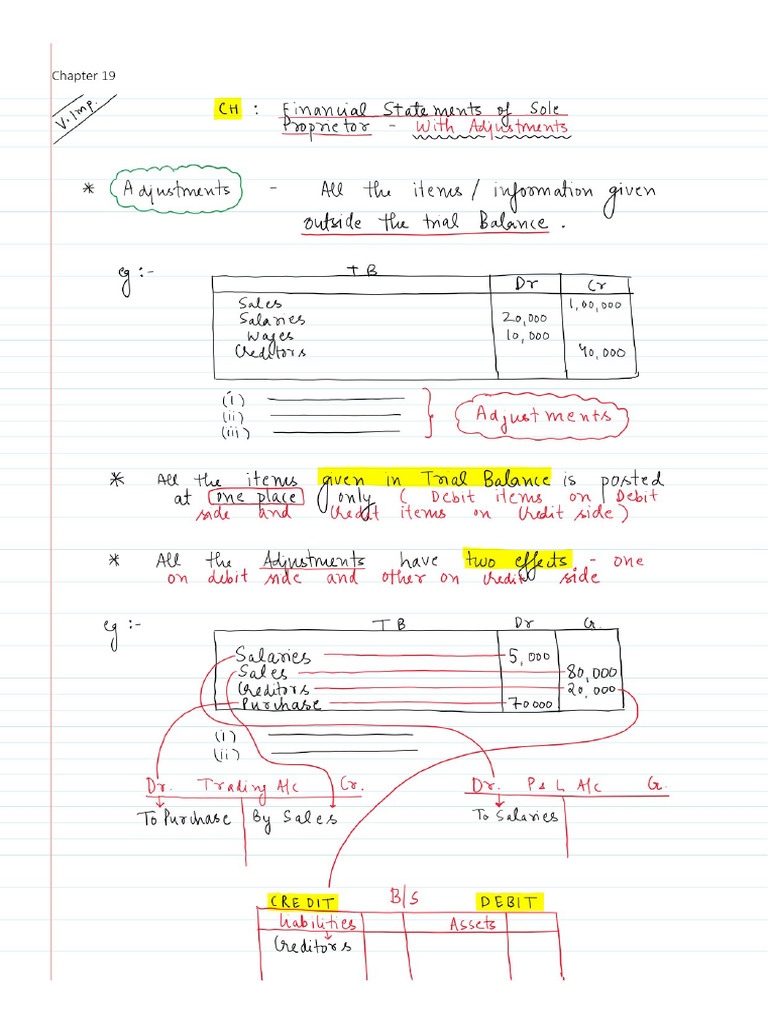 Chapter 19
V. Imp.
CH : Financial Statements of Sole
Proprietor - With Adjustments
* Adjustments - All the items / information given
outside the trial Balance.
eg :- T B
Dr Cr
Sales 1,00,000
Salaries 20,000
Wages 10,000
Creditors 40,000
(i)
(ii)
(iii)
Adjustments
* All the items given in Trial Balance is posted
at one place only ( Debit items on Debit
side and Credit items on Credit side)
* All the Adjustments have two effects - one
on debit side and other on credit side
eg :- T B Dr Cr.
Salaries 5,000
Sales 80,000
Creditors 20,000
Purchase 70000
(i)
(ii)
Dr. Trading A/c Cr. Dr. P & L A/c Cr.
To Purchase By Sales To Salaries
CREDIT B/S DEBIT
Liabilities Assets
Creditors